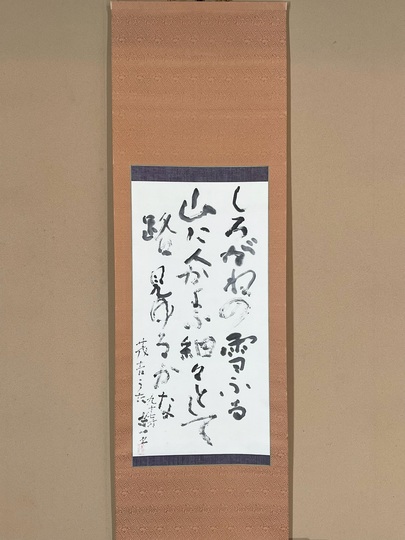 しろがねの雪ふる
山に人かよふ細々として
路見ゆるかな
茂吉うた